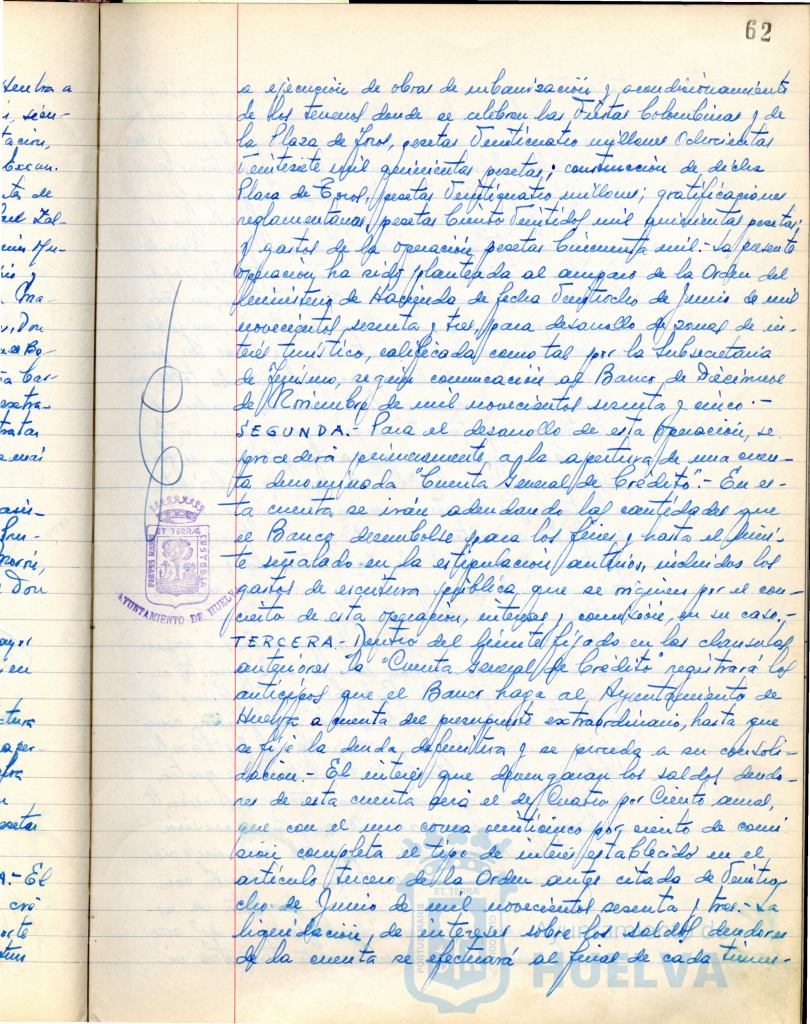 62
a ejecución de obras de urbanización y acondicionamiento
de los terrenos donde se celebran las Fiestas Colombinas y de
la Plaza de Toros, pesetas Veinticuatro millones Ochocientas
Veintisiete mil quinientas pesetas; construcción de dicha
Plaza de Toros, pesetas Veinticuatro millones; gratificaciones
reglamentarias, pesetas Ciento Veintidos mil quinientas pesetas,
y gastos de la operación pesetas Cincuenta mil.- La presente
operación ha sido planteada al amparo de la Orden del
Ministerio de Hacienda de fecha Veintiocho de Junio de mil
novecientos sesenta y tres, para desarrollo de zonas de in-
terés turístico, calificada como tal por la Subsecretaría
de Turismo, según comunicación al Banco de Diecinueve
de Noviembre de mil novecientos sesenta y cinco.-
SEGUNDA.- Para el desarrollo de esta operación, se
procederá primeramente, a la apertura de una cuen-
ta denominada "Cuenta General de Crédito".- En es-
ta cuenta se irán adeudando las cantidades que
el Banco desembolse para los fines y hasta el lími-
te señalado en la estipulación anterior, incluidos los
gastos de escritura pública que se originen por el con-
cierto de esta operación, intereses y comisión, en su caso.-
TERCERA.- Dentro del límite fijado en las clausulas
anteriores la "Cuenta General de Crédito" registrará los
anticipos que el Banco haga al Ayuntamiento de
Huelva a cuenta del presupuesto extraordinario, hasta que
se fije la deuda definitiva y se proceda a su consoli-
dación.- El interés que devengaran los saldos deudo-
res de esta cuenta será el de Cuatro por Ciento anual,
que con el uno coma veinticinco por ciento de comi
sión completa el tipo de interés establecido en el
artículo tercero de la Orden antes citada de Veintio
cho de Junio de mil novecientos sesenta y tres.- La
liquidación de intereses sobre los saldos deudores
de la cuenta se efectuará al final de cada trimes-
PORTUS MARIS ET TERRAE CUSTODIA
AYUNTAMIENTO DE HUELVA
Ayuntamiento de
HUELVA